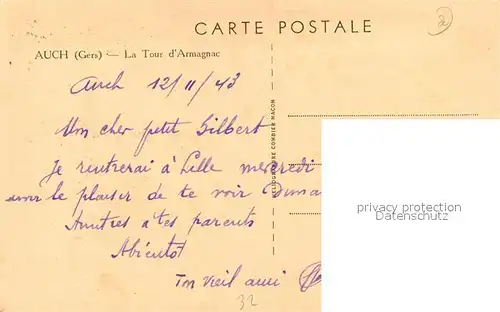 CARTE POSTALE
AUCH (Gers) — La Tour d'Armagnac
Auch 12/11/43
Mon cher petit Gilbert
Je rentrerai à Lille mercredi
avoir le plaisir de te voir
à tes parents
Abientôt
Ton vieil ami
HELIOGRAVURE COMBIER MACON
privacy protection
Datenschutz
32